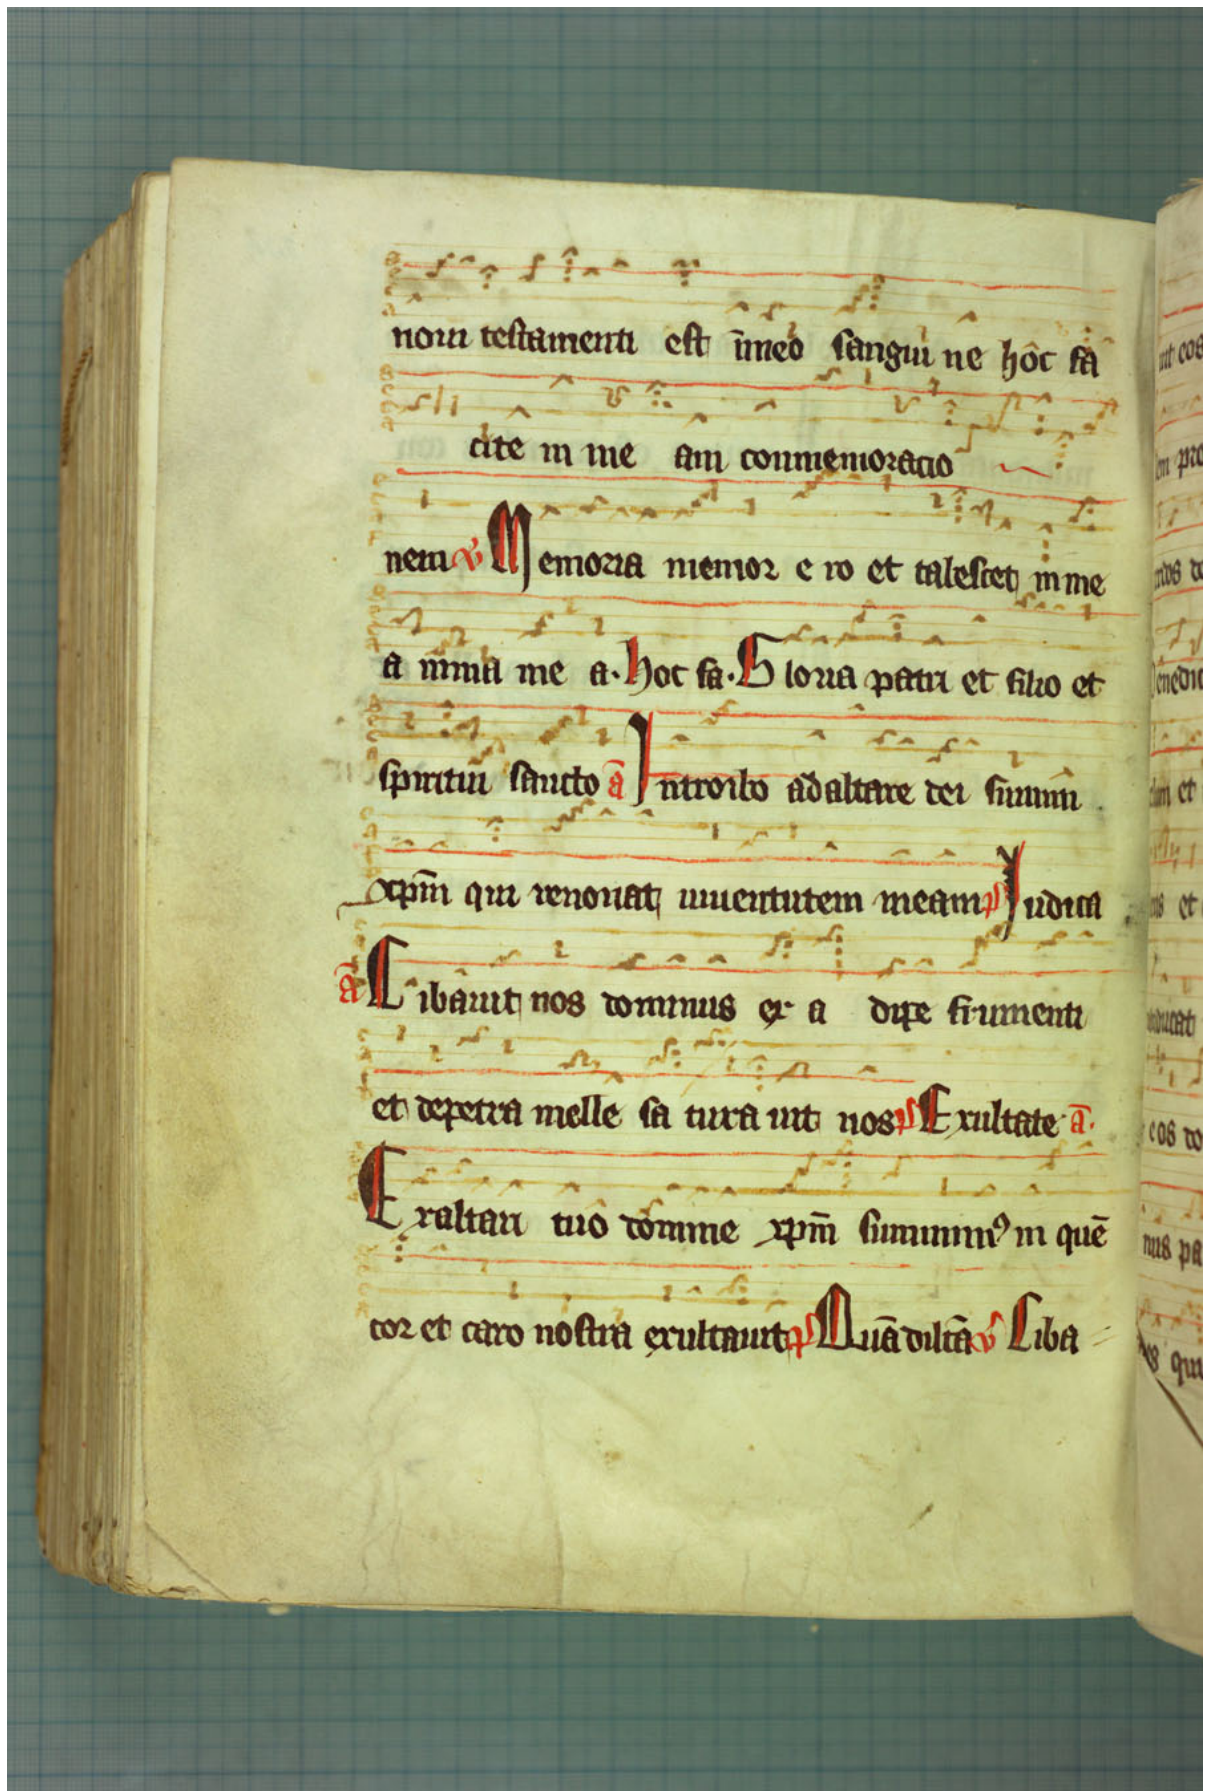 noui testamenti est i̅meo sangui ne hoc fa
cite in me am conmemoracio
nem v̓ Memoria memor e ro et tabescet in me
a nima me a. hoc fa. Gloria patri et filio et
spiritui sancto a̅ Introibo ad altare dei sumam
xp̅m qui renouat iuuentutem meam p̅s Iudica
a̅ Cibauit nos dominus ex a dipe frumenti
et depetra melle sa tura uit nos p̅s Exultate a̅.
Exaltari tuo domine xp̅m sumimus in que̅
cor et caro nostra exultauit p̅s Qua̅ dilc̅a v̓ Ciba